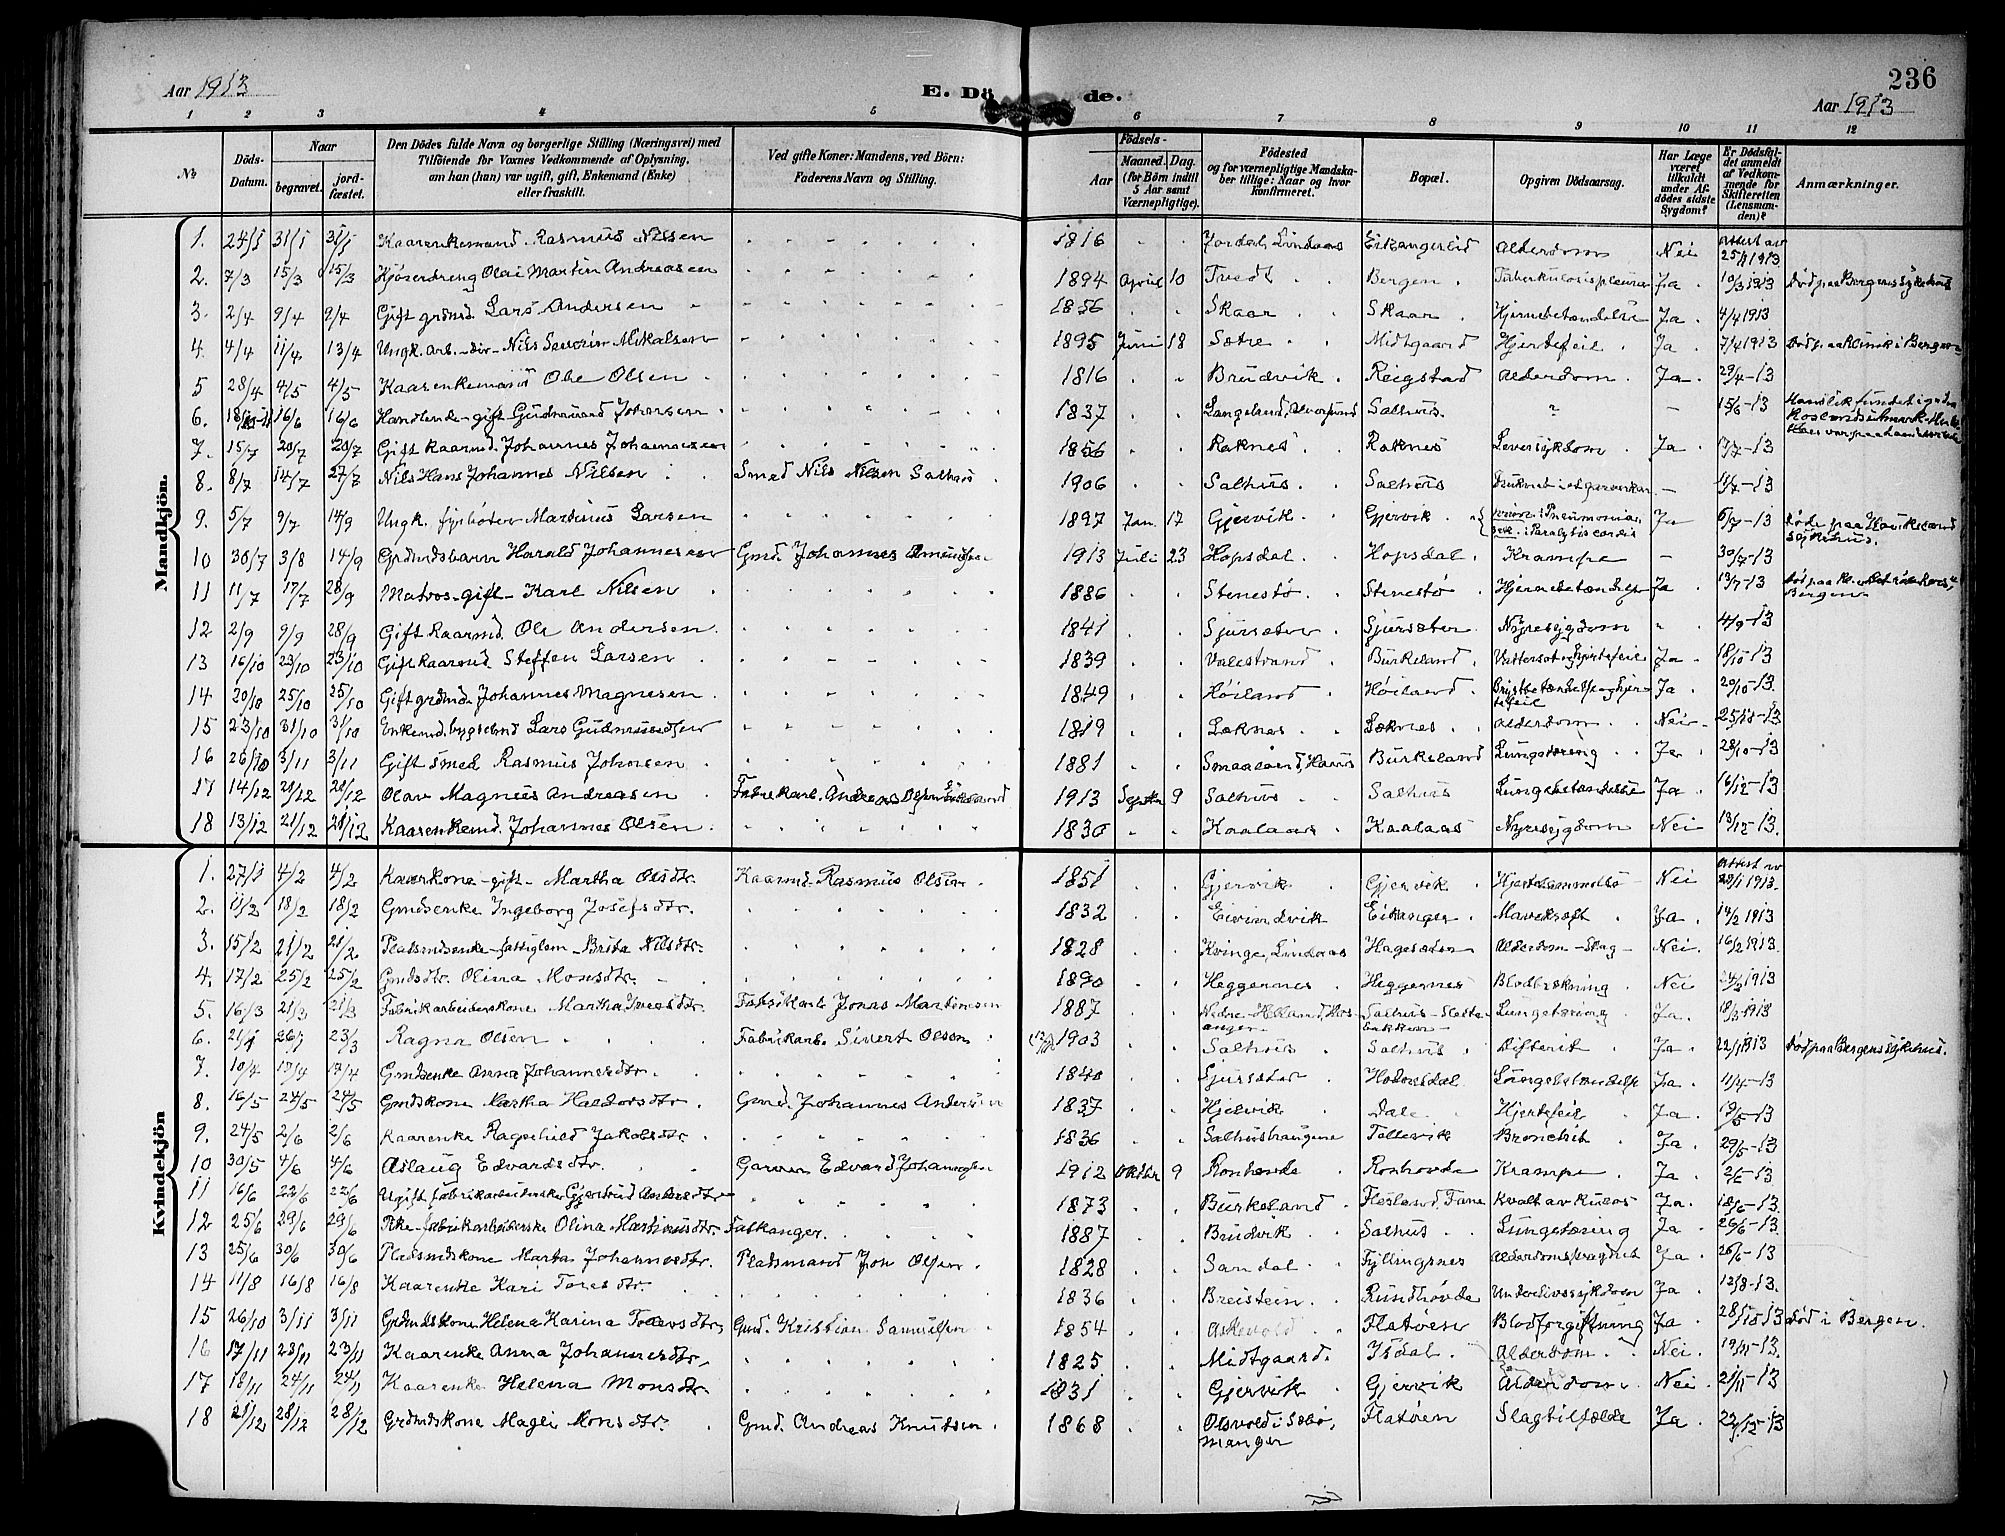 Aar 1913
E. Dö de.
236
Aar 1913
1 2 3 4 5 6 7 8 9 10 11 12
No
Döds-Datum.
Naar
begravet.
jordfæstet.
Den Dödes fulde Navn og borgerlige Stilling (Næringsvei) med
Tilföiende for Voxnes Vedkommende af Oplysning.
om han (hun) var ugift, gift, Enkemand (Enke)
eller fraskilt.
Ved gifte Koner: Mandens, ved Börn:
Faderens Navn og Stilling.
Födsels-
Aar
Maaned. Dag.
(for Börn indtil
5 Aar samt
Værnepligtige).
Födested
og for værnepligtige Mandskaber
tillige: Naar og hvor
konfirmeret.
Bopæl.
Opgiven Dödsaarsag.
Har Læge
været
tilkaldt
under Afdödes
sidste
Sygdom?
Er Dödsfaldet
anmeldt
af Vedkommende
for
Skifteretten
(Lensmanden)?
Anmærkninger.
Mandkjön.
1. 24/1 31/1 31/1 Kaarenkemand Rasmus Nilsen 1816 Jordal, Lindaas Eikangerlid Alderdom Nei Attest av 25/1 1913
2. 7/3 15/3 15/3 Olai Martin Andreassen 1894 April 10 Tvedt Bergen Ja 10/3 1913 Død paa Bergens sykehus
3. 2/4 9/4 9/4 Gift grdmd. Lars Andersen 1856 Skaar Skaar Hjernebetændelse Ja 4/4 1913
4. 4/4 11/4 13/4 Ungk. arb. Nils Severin Mikalsen 1895 Juni 18 Sætre Midtgaard Hjertefeil Ja 7/4 1913 Død paa Klinik i Bergen
5 28/4 4/5 4/5 Kaarenkemand Ole Olsen 1816 Brudvik Reigstad Alderdom Ja 29/4-13
6. 16/6 16/6 Handlende gift Gudmund Johnsen 1837 Langeland, Alversund Salhus. " — 15/6-13
7. 15/7 20/7 20/7 Gift Kaarmd. Johannes Johannessen 1856 Raknes Raknes Leversykdom Ja 17/7-13
8. 8/7 14/7 27/7 Nils Hans Johannes Nilsen Smed Nils Nilsen Salhus 1906 Salhus Salhus — 11/7-13
9. 5/7 9/7 14/9 Ungk. fyrbøter Martinus Larsen 1897 Jan. 17 Gjervik Gjervik Pneumonia Paralysis cordis Ja 6/7-13 Døde paa Haukeland sykehus.
10 30/7 3/8 14/9 Grdmdsbarn Harald Johannessen Gmd. Johannes 1913 Juli 23 Hopsdal Hopsdal Krampe — 30/7-13
11 11/7 17/7 28/9 Matros gift Karl Nilsen 1886 Stenestø Stenestø Hjernebetændelse Ja 13/7-13 Død paa Bergen
12 2/9 9/9 28/9 Gift Kaarmd. Ole Andersen 1841 Sjursæter Sjursæter Nyresygdom " 4/9-13
13 16/10 23/10 23/10 Gift Kaarmd Steffen Larsen 1839 Valestrand Burkeland Hjertefeil Ja 18/10-13
14 20/10 25/10 25/10 Gift grdmd. Johannes Magnesen 1849 Høiland Høiland Brystbetændelse og hjertefeil Ja 20/10-13.
15 23/10 31/10 31/10 Enkemd. Lars Gudmundsen 1819 Læknes Læknes Alderdom Nei
16 26/10 3/11 3/11 Gift smed Rasmus Johnsen 1881 Smaaland, Hauus Burkeland Lungetæring Ja 28/10-13
17 14/12 21/12 21/12 Olav Magnus Andreasen Fabrikarb. Andreas Olsen 1913 Septbr 9 Salhus Salhus Lungebetændelse Ja 16/12-13
18 13/12 21/12 21/12 Kaarenkemd. Johannes Olsen 1830 Kaalaas Kaalaas Nyresygdom Nei 13/12-13.
Kvindekjön
1. 27/1 4/2 4/2 Kaarkone gift Martha Olsdtr. Kaarmd. Rasmus Olsen 1851 Gjervik Gjervik Hjertelammelse Nei Attest av 28/1 1913.
2. 11/2 18/2 18/2 Gmdsenke Ingeborg Josefsdtr. 1832 Eivindvik Eikanger Mavekræft Ja 14/2 1913
3. 15/2 21/2 21/2 Pladsmdsenke fattiglem Brita Nilsdtr. 1828 Kvinge, Lindaas Hagesæter Alderdom Slag Nei 16/2 1913.
4. 17/2 25/2 25/2 Gmdsdtr. Olina Monsdtr. 1890 Heggernes Heggernes Blodbrækning Nei 24/2 1913
5. 16/3 21/3 21/3 Fabrikarbeiderskone Martha Iversdtr. Fabrikarb. Jonas Martinsen 1887 Nedre Helland, Hosanger Salhus Lungetæring Ja 18/3 1913
6. 21/1 26/1 23/3 Ragna Olsen Fabrikarb. Sivert Olsen 1903 Salhus Salhus Difterit Ja 22/1 1913 Død paa Bergens sykehus.
7. 10/4 17/4 17/4 Gmdsenke Anna Johannesdtr. 1840 Sjursæter Hodnesdal Lungebetændelse Ja 11/4-13
8. 16/5 24/5 24/5 Gmdskone Martha Haldorsdtr. Gmd. Johannes Andersen 1837 Hjelvik Dale Hjertefeil Ja 19/5-13
9. 24/5 2/6 2/6 Kaarenke Ragnhild Jakobsdtr. 1836 Salhushaugene Tellevik Bronchit Ja 29/5-13
10 30/5 4/6 4/6 Aslaug Edvardsdtr. Garver Edvard Johannesen 1912 Oktbr 9 Ronhovde Ronhovde Krampe Ja 2/6-13
11 16/6 22/6 22/6 Ugift fabrikarbeiderske Gjertrud Andersdtr. 1873 Burkeland Flesland, Fane Kvalt av kulos Ja 18/6-13
12 25/6 29/6 29/6 Pike fabrikarbeiderske Olina Martinusdtr. Falkanger. 1887 Brudvik Salhus Lungetæring Ja 26/6-13
13 25/6 30/6 30/6 Pladsmdskone Marta Johannesdtr. Pladsmand Jon Olsen 1828 Sandal Fyllingsnes Alderdomssvaghet Ja 26/6-13
14 11/8 16/8 16/8 Kaarenke Kari Toresdtr. 1836 Breistein Rundhovde Underlivssykdom Ja 12/8-13.
15 26/10 3/11 3/11 Grdmdskone Helena Karina Gmd. Kristian Samuelsen 1854 Askevold Flatøen Blodforgiftning Ja 28/10-13 Død i Bergen.
16 17/11 23/11 23/11 Kaarenke Anna Johannesdtr. 1825 Midtgaard Isdal Alderdom Nei 19/11-13
17 18/11 24/11 24/11 Kaarenke Helena Monsdtr. 1831 Gjervik Gjervik Alderdom Nei 21/11-13
18 21/12 28/12 28/12 Grdmdskone Magli Monsdtr. Gmd. Andreas Knutsen 1868 Olsvold i Sæbø, manger Flatøen Slagtilfælde Ja 22/12-13